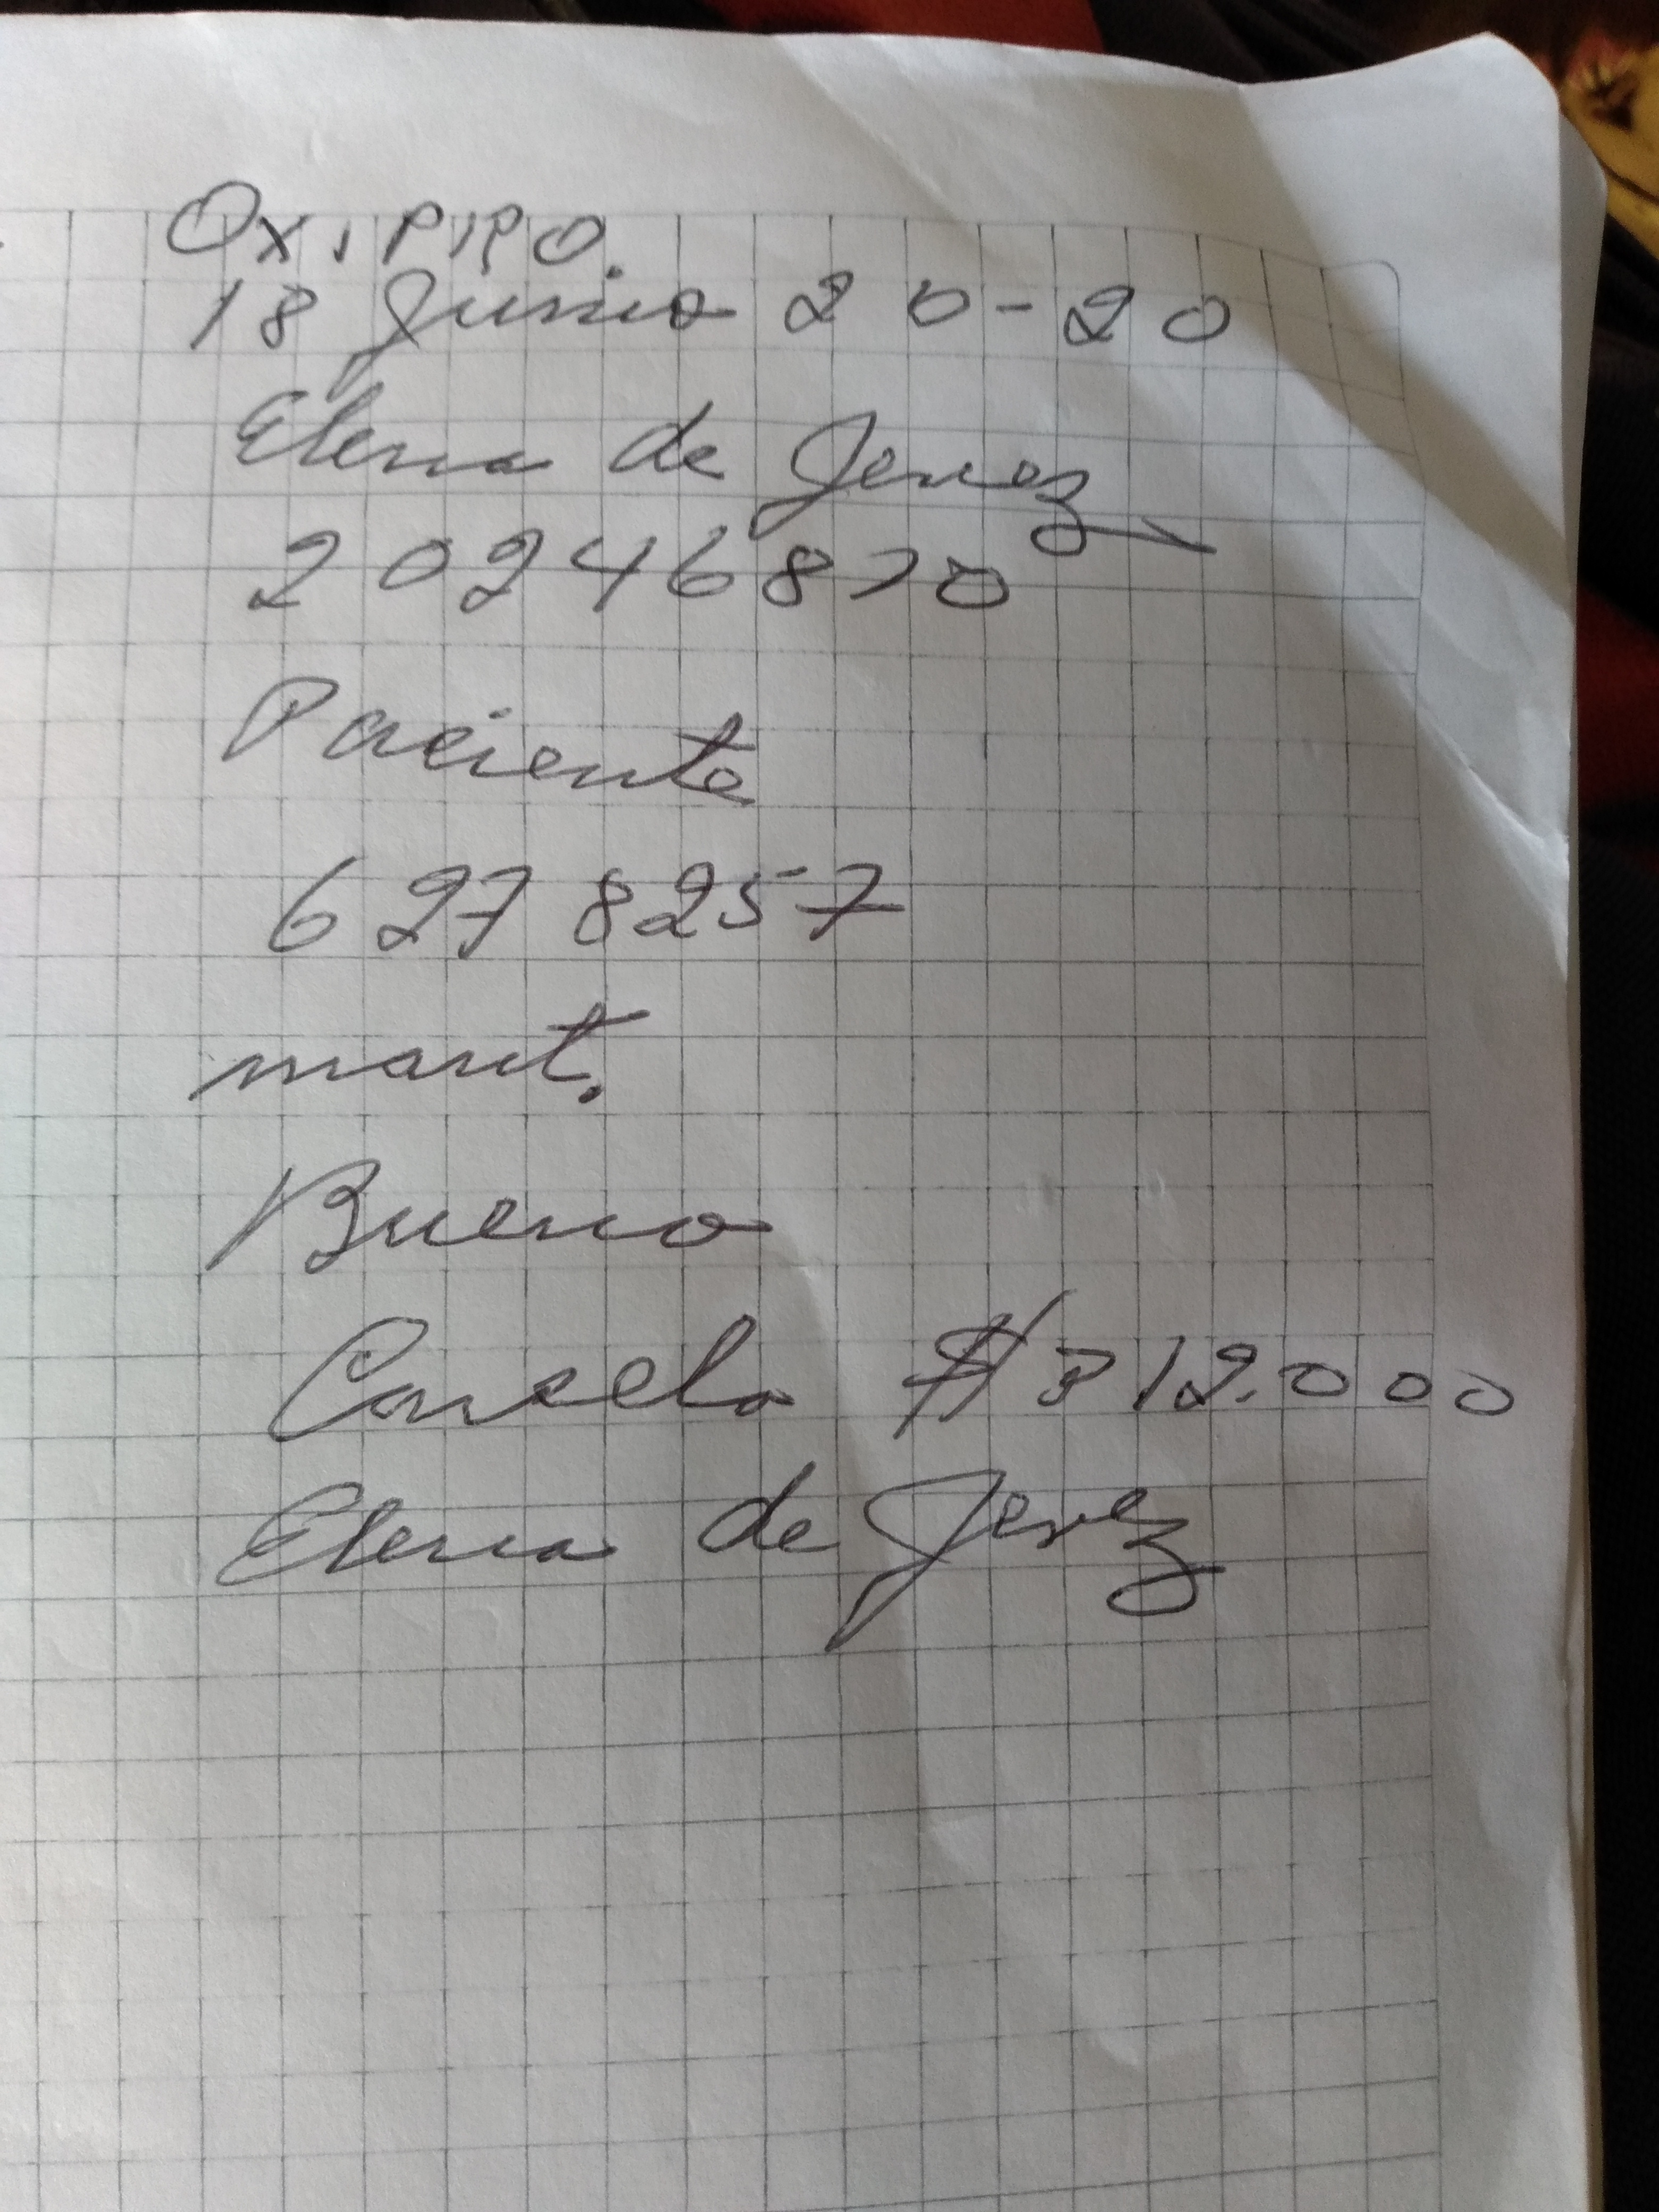 OXIPRO.
18 Junio 20-20
Elena de Jerez
20246870
Paciente
6278257
mant.
Bueno
Cancelo $312.000
Elena de Jerez